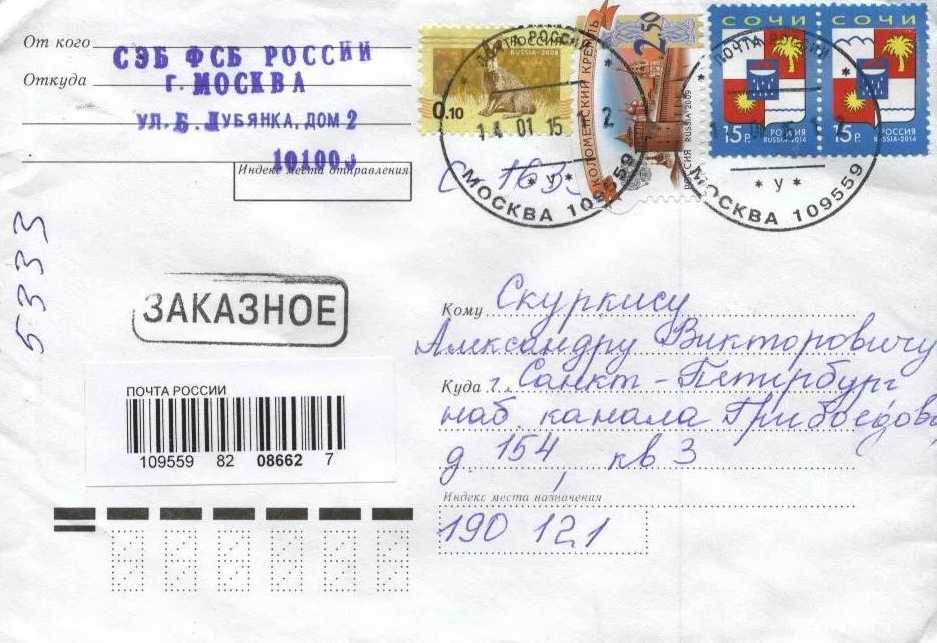 От кого
СЭБ ФСБ РОССИИ
Откуда
Г. МОСКВА
УЛ. Б. ЛУБЯНКА, ДОМ 2
101000
Индекс места отправления
5333
РОССИЯ
RUSSIA-2008
0.10
КОЛОМЕНСКИЙ КРЕМЛЬ
2.50
РОССИЯ RUSSIA-2009
СОЧИ
15 Р.
РОССИЯ
RUSSIA-2014
СОЧИ
15 Р.
РОССИЯ
RUSSIA-2014
ПОЧТА РОССИИ
14 01 15
МОСКВА 109559
ПОЧТА РОССИИ
* У *
МОСКВА 109559
ЗАКАЗНОЕ
ПОЧТА РОССИИ
109559 82 08662 7
Кому Скуркису
Александру Викторовичу
Куда г. Санкт-Петербург
наб. канала Грибоедова
д. 154, кв 3
Индекс места назначения
190 121